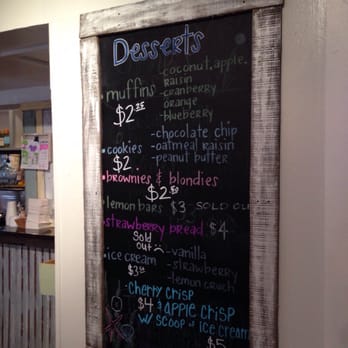 Desserts
• muffins -coconut, apple,
raisin
-cranberry
orange
-blueberry
$2.25
• cookies -chocolate chip
-oatmeal raisin
-peanut butter
$2.
• brownies & blondies
$2.50
• lemon bars $3 SOLD OUT
• strawberry bread $4
Sold
out
• ice cream -vanilla
-strawberry
-lemon crunch
-cherry crisp
$4 & APPLE CRISP
W/ SCOOP of ICE CREAM
$5